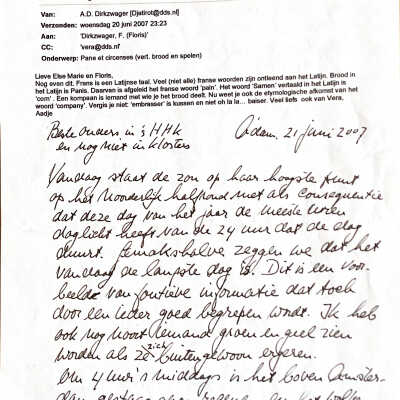 Van: A.D. Dirkzwager [Djetirot@dds.nl]
Verzonden: woensdag 20 juni 2007 23:23
Aan: 'Dirkzwager, F. (Floris)'
CC: 'vera@dds.nf
Onderwerp: Pane et circenses (vert. brood en spelen)
Lieve Else Marie en Floris,
Nog even dit. Frans is een Latijnse taal. Veel (niet alle) franse woorden zijn ontleend aan het Latijn. Brood in
het Latijn is Panis. Daarvan is afgeleid het franse woord 'pain'. Het woord 'Samen' vertaald in het Latijn is
'com' . Een kompaan is iemand met wie je het brood deelt. Nu weet je ook de etymologische afkomst van het
woord 'company'. Vergis je niet: 'embrasser' is kussen en niet oh la la... baiser. Veel liefs ook van Vera,
Aadje
Beste ouders, in 's HHK A'dam, 21 juni 2007
en nog niet in klosters
Vandaag staat de zon op haar hoogste punt
op het Noorderlijk halfrond met als consequentie
dat deze dag van het jaar de meeste uren
daglicht heeft van de 24 uur dat de dag
duurt. Gemakshalve zeggen we dat het
vandaag de langste dag is. Dit is een voor-
beeld van foutieve informatie dat toch
door een ieder goed begrepen wordt. Ik heb
ook nog nooit iemand groen en geel zien
worden als ze zich buitengewoon ergeren.
Om 4 uur 's middags is het boven Amster-
dam